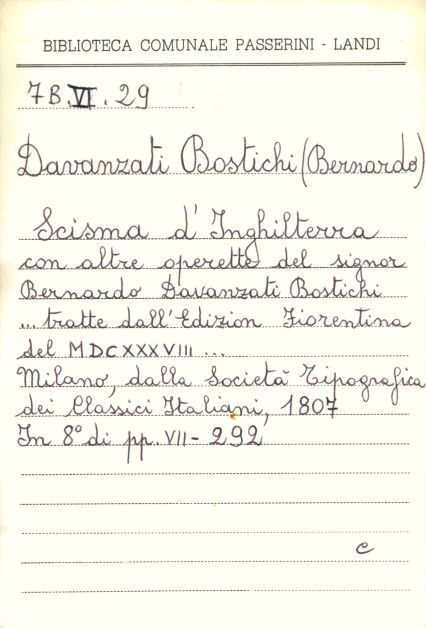 BIBLIOTECA COMUNALE PASSERINI - LANDI
7B.VI.29
Davanzati Bostichi (Bernardo)
Scisma d'Inghilterra
con altre operette del signor
Bernardo Davanzati Bostichi
... tratte dall'Edizion Fiorentina
del MDCXXXVIII ...
Milano, dalla Società Tipografica
dei Classici Italiani, 1807
In 8° di pp. VII - 292
c